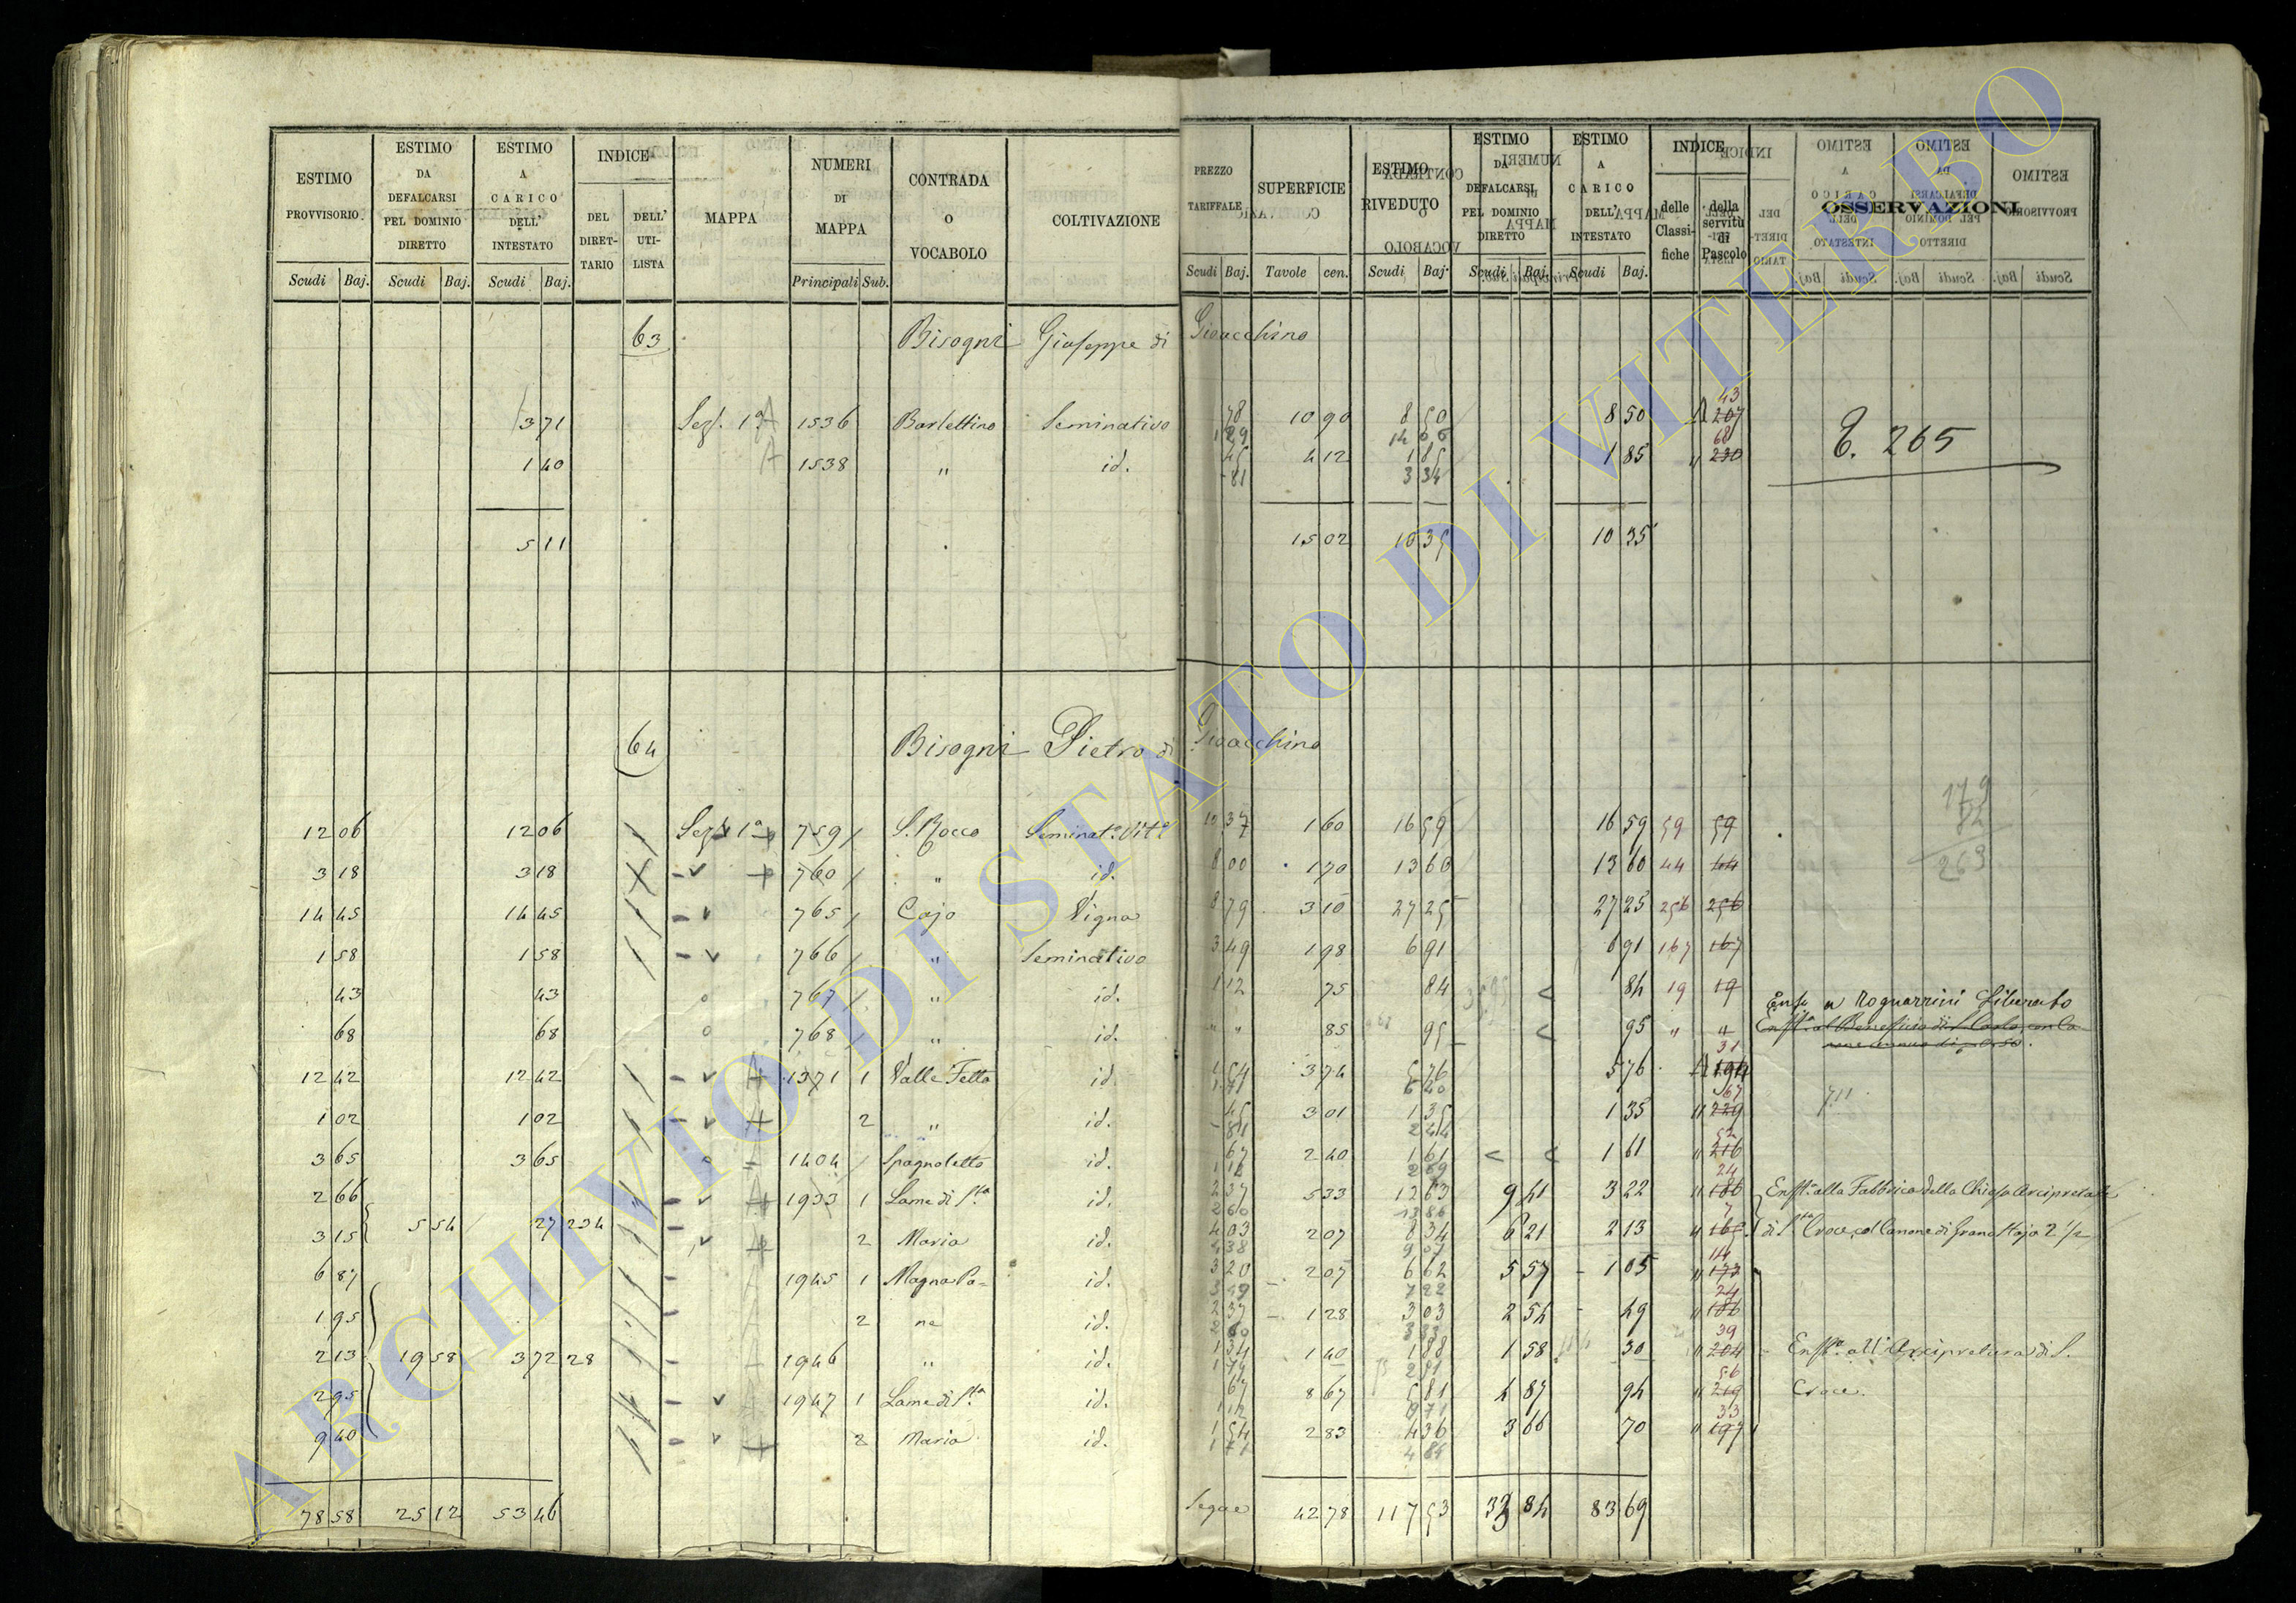 ESTIMO PROVVISORIO. Scudi Baj.
ESTIMO DA DEFALCARSI PEL DOMINIO DIRETTO Scudi Baj.
ESTIMO A CARICO DELL' INTESTATO Scudi Baj.
INDICE
DEL DIRET-TARIO
DELL' UTI-LISTA
MAPPA
NUMERI DI MAPPA Principali Sub.
CONTRADA O VOCABOLO
COLTIVAZIONE
PREZZO TARIFFALE Scudi Baj.
SUPERFICIE Tavole cen.
ESTIMO RIVEDUTO Scudi Baj.
ESTIMO DA DEFALCARSI PEL DOMINIO DIRETTO Scudi Baj.
ESTIMO A CARICO DELL' INTESTATO Scudi Baj.
INDICE
delle Classi-fiche
della servitù di Pascolo
OSSERVAZIONI
63 Bisogni Giuseppe di Gioacchino
3 71 Sez. 1ª 1536 Barlettino Seminativo 78 10 90 8 50 8 50 207 43
1 29 14 06
1 40 1538 " id. 45 4 12 1 85 1 85 " 230 68
81 3 34
E. 265
5 11 15 02 10 35 10 35
64 Bisogni Pietro di Gioacchino
12 06 12 06 Sez. 1ª 759 S. Rocco Seminat. Vit. 10 37 1 60 16 59 16 59 59 59
3 18 3 18 760 " id. 8 00 1 70 13 60 13 60 44 44
14 45 14 45 765 Cajo Vigna 8 79 3 10 27 25 27 25 256 256
1 58 1 58 766 " Seminativo 3 49 1 98 6 91 6 91 167 167
43 43 767 " id. 1 12 75 84 84 19 19
68 68 768 " id. " " 85 95 95 " "
12 42 12 42 1371 1 Valle Fetta id. 1 54 3 74 5 76 5 76 194 31
1 02 1 02 2 " id. 45 3 01 1 35 1 35 " 229 67
3 65 3 65 1404 Spagnoletto id. 67 2 40 1 61 1 61 " 216 52
2 66 1933 1 Lame di Sta id. 2 37 5 33 12 63 9 41 3 22 " 186 24
5 54 27 234
3 15 2 Maria id. 4 03 2 07 8 34 6 21 2 13 " 7
6 87 1945 1 Magna Pa= id. 3 20 2 07 6 62 5 57 1 05 " 173 14
1 95 2 ne id. 2 37 1 28 3 03 2 54 49 " 186 24
2 13 19 58 372 28 1946 " id. 1 34 1 40 1 88 1 58 30 " 204 39
2 95 1947 1 Lame di Sta id. 67 8 67 5 81 4 87 94 " 219 56
9 40 2 Maria id. 1 54 2 83 4 36 3 66 70 " 197 33
179
263
a Rognarrini Liberato
Enfta al Beneficio di S. Carlo con la
Enfta alla Fabbrica della Chiesa Arcipretale
di Sta Croce, col Canone di Grano Staja 2 1/2
Enfta all'Arcipretura di S.
Croce.
78 58 25 12 53 46 Segue 42 78 117 53 33 84 83 69
ARCHIVIO DI STATO DI VITERBO